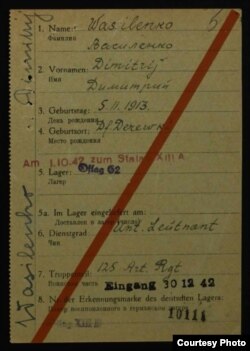 6
1. Name: Wasilenko
Фамилия Василенко
2. Vorname: Dimitrij
Имя Димитрий
3. Geburtstag: 5. II. 1913.
День рождения
4. Geburtsort: Df.
Место рождения
Am 1.10.42 zum Stalag XIII A
5. Lager: Oflag 62
Лагерь
5a. Im Lager eingeliefert am:
6. Dienstgrad: Unt. Leutnant
Чин
7. Truppenteil: 125 Art. Rgt
Воинская часть Eingang 30 12 42
8. No der Erkennungsmarke des deutschen Lagers:
10111
Wasilenko Dimitrij
Courtesy Photo